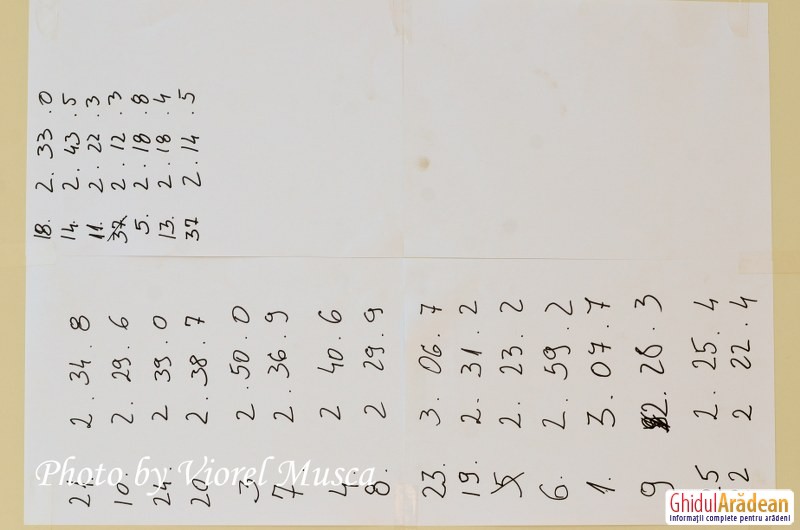 18. 2. 33 .0
14. 2. 43 .5
11. 2. 22 .3
37 2. 12 .3
5. 2. 18 .8
13. 2. 18 .4
37 2. 14 .5
2. 34. 8
10. 2. 29. 6
2 39. 0
20 2. 38. 7
3. 2 . 50. 0
7. 2. 36. 9
4. 2 40. 6
8. 2 29. 9
23. 3. 06. 7
19. 2. 31. 2
5 2. 23. 2
6. 2. 59. 2
1. 3. 07. 7
9 2. 28. 3
2. 25. 4
2 22. 4
Photo by Viorel Musca
GhidulArădean
informații complete pentru arădeni